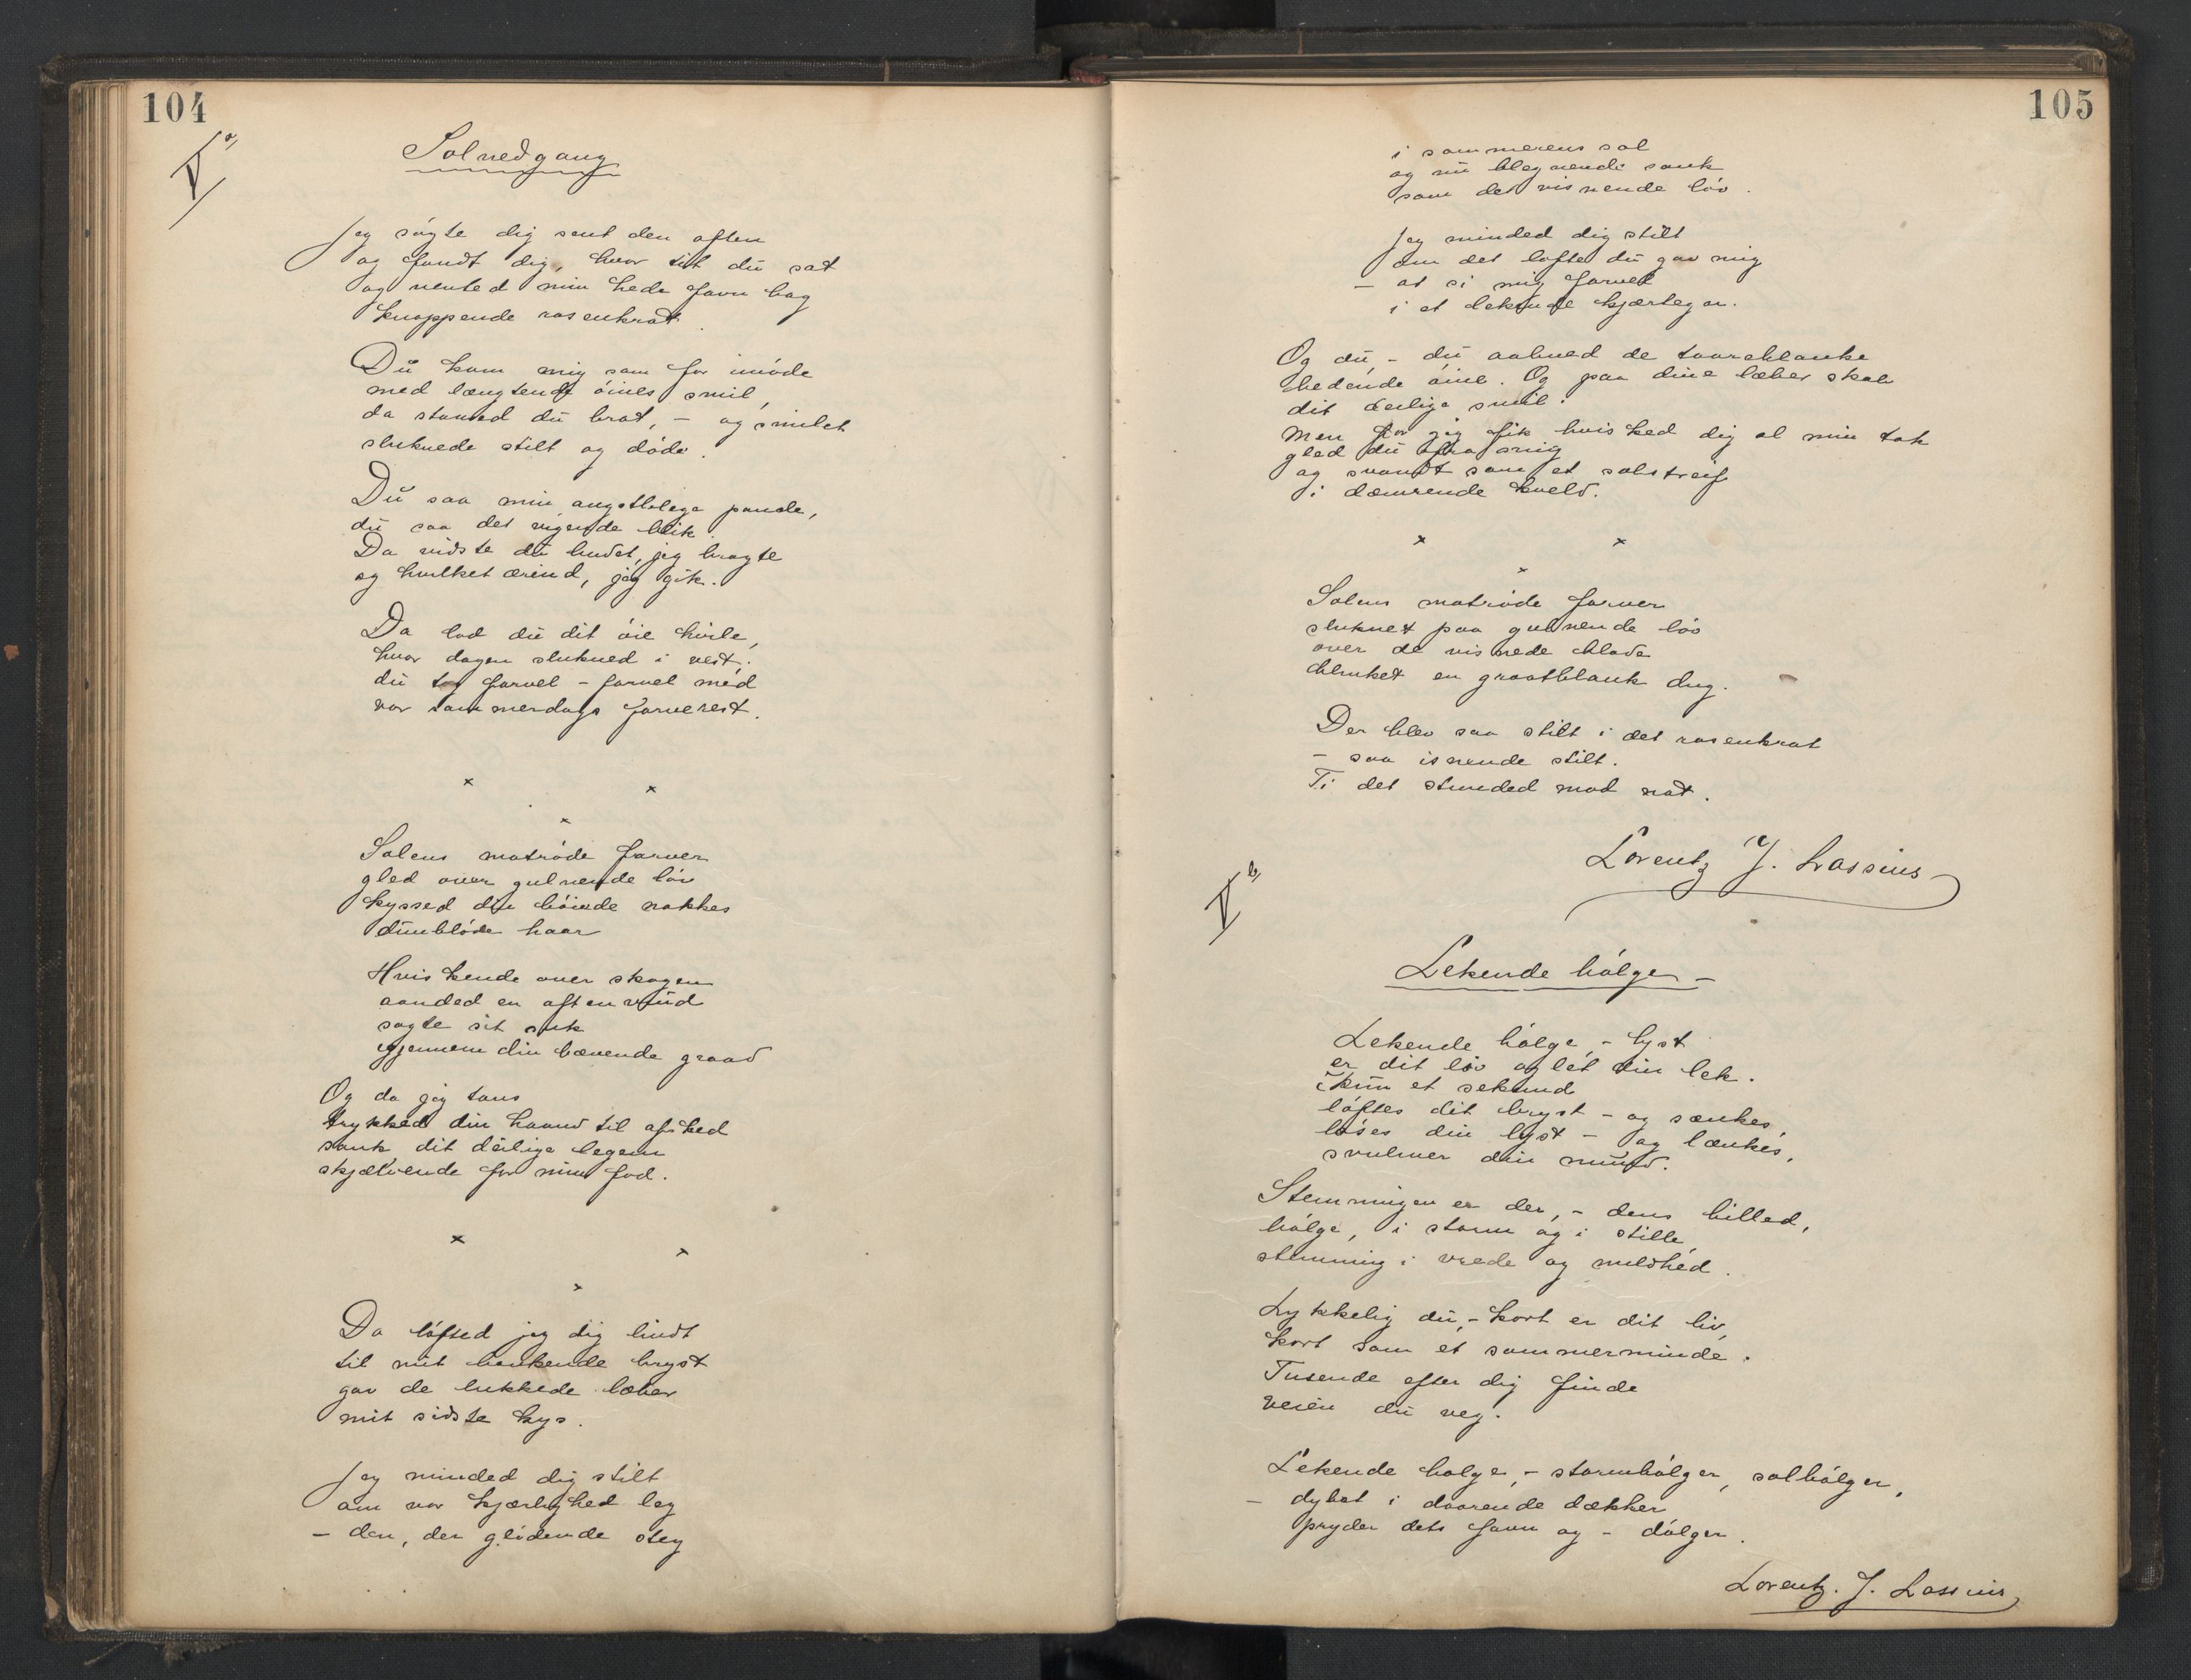 104
V a)
Solnedgang
Jeg søgte dig sent den aften
og fandt dig, hvor tit du sat
og vented min hede favn bag
knoppende rosenkrat.
Du kom mig som før imøde
med længtende øines smil,
da stansed du brat, – og smilet
sluknede stilt og døde.
Du saa min angstblege pande,
du saa det vigende blik.
Da vidste du budet, jeg bragte
og hvilket ærind, jeg gik.
Da lod du dit øie hvile,
hvor dagen slukned i vest.
du tog farvel – farvel med
vor sommerdags farverest.
x x
x
Solens matrøde farver
gled over gulnende løv
kyssed din bøiede nakkes
dunbløde haar
Hviskende over skogen
aanded en aftenvind
sagte sit suk
igjennem din bævende graad
Og da jeg taus
trykked din haand til afsked
sank dit deilige legem
skjælvende for min fod.
x x
x
Da løfted jeg dig lindt
til mit bankende bryst
gav de lukkede læber
mit sidste kys.
Jeg minded dig stilt
om vor kjærlighed leg
– den, der glødende steg
105
i sommerens sol
og nu blegnende sank
som det visnende løv.
Jeg minded dig stilt
om det løfte du gav mig
– at si mig farvel
i et lekende kjærtegn.
Og du, – du aabned de taareblanke
bedende øine. Og paa dine læber skalv
dit deilige smil.
Men før jeg fik hvisked dig al min tak
gled du fra mig
og svandt som et solstreif
i dæmrende kveld.
x x
x
Solens matrøde farver
sluknet paa gulnende løv
over de visnede blade
blinket en graatblank dug.
Der blev saa stilt i det rosenkrat
– saa isnende stilt.
Ti det stunded mod nat.
Lorentz J. Lassius
V b)
Lekende bølge –
Lekende bølge, – lyst
er dit løv og let din lek.
i kun et sekund
løftes dit bryst – og sænkes,
løses din lyst – og lænkes,
svulmer din mund.
Stemningen er der, – dens billed,
bølge, i storm og i stille,
stemning i vrede og mildhed.
Lykkelig du, – kort er dit liv,
kort som et sommerminde.
Tusende efter dig finde
veien du veg.
Lekende bølge, – stormbølger, solbølger,
– dybet i daarende dækker
pryder dets favn og – dølger.
Lorentz. J. Lassius